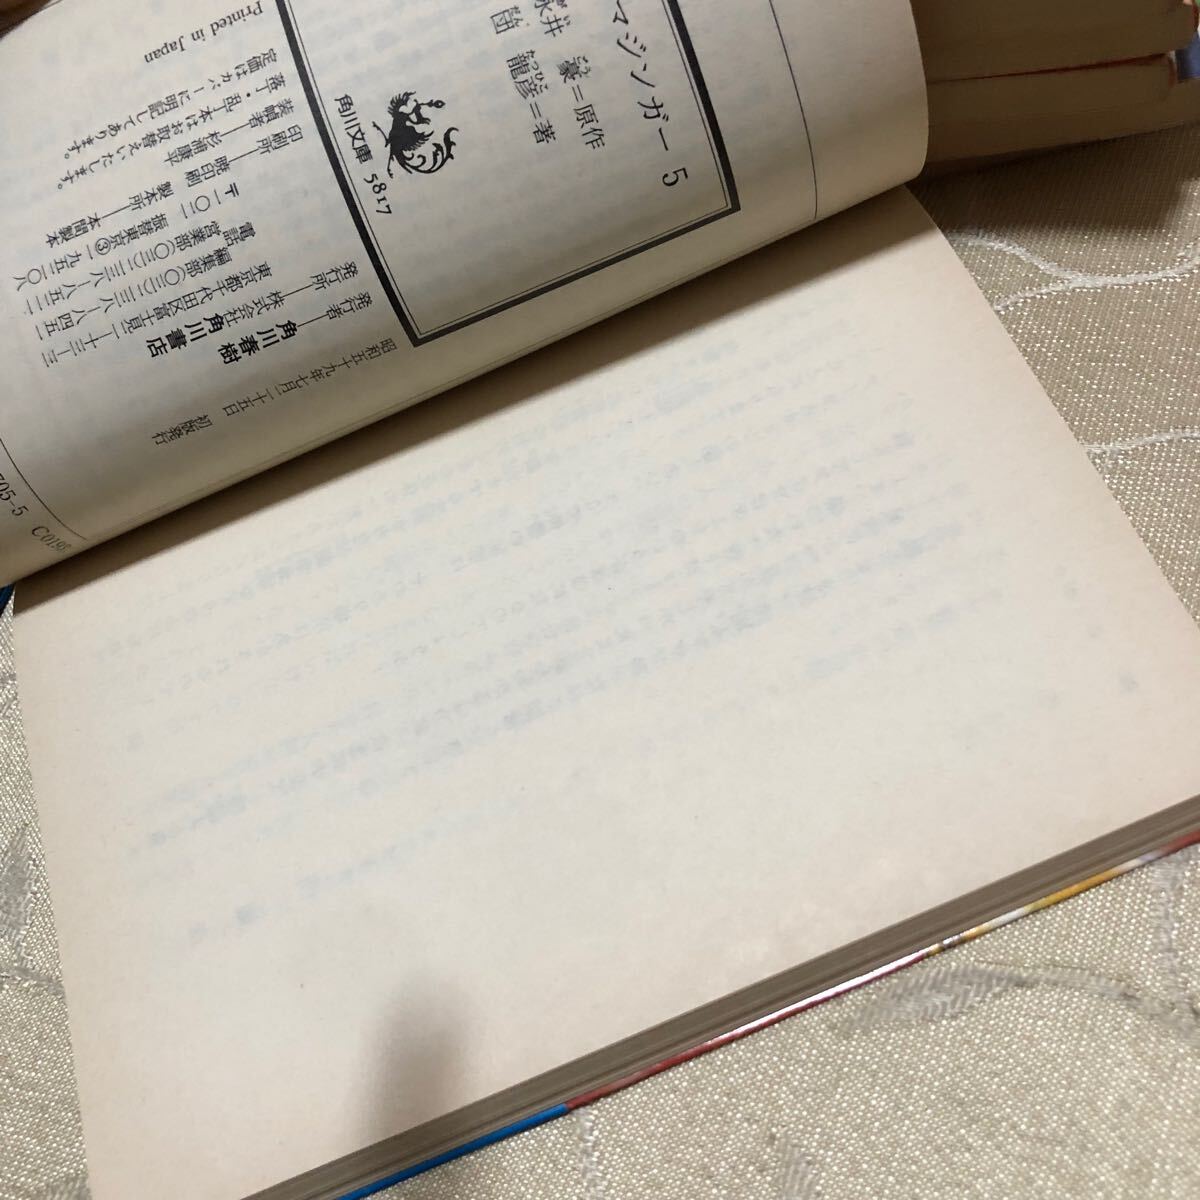 マジンガー 5
永井 豪＝原作
團 龍彦＝著
角川文庫 5817
昭和五十九年七月二十五日 初版発行
発行者──角川春樹
発行所──株式会社 角川書店
東京都千代田区富士見二―十三―三
編集部(〇三)二三八―八四五一
営業部(〇三)二三八―八五二一
〒一〇二 振替東京③一九五二〇八
印刷所──暁印刷 製本所──本間製本
装幀者──杉浦康平
落丁・乱丁本はお取替えいたします。
定価はカバーに明記してあります。
Printed in Japan
705-5 C0193